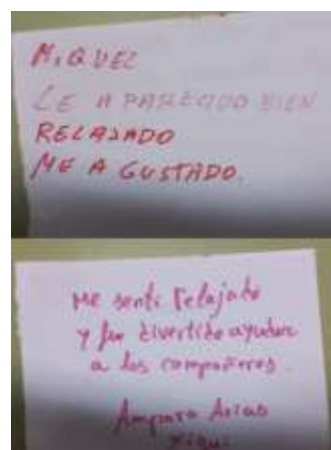 MIQUEL
LE A PARECIDO BIEN
RELAJADO
ME A GUSTADO.
Me sentí relajada
y fue divertido ayudar
a los compañeros.
Amparo Arias